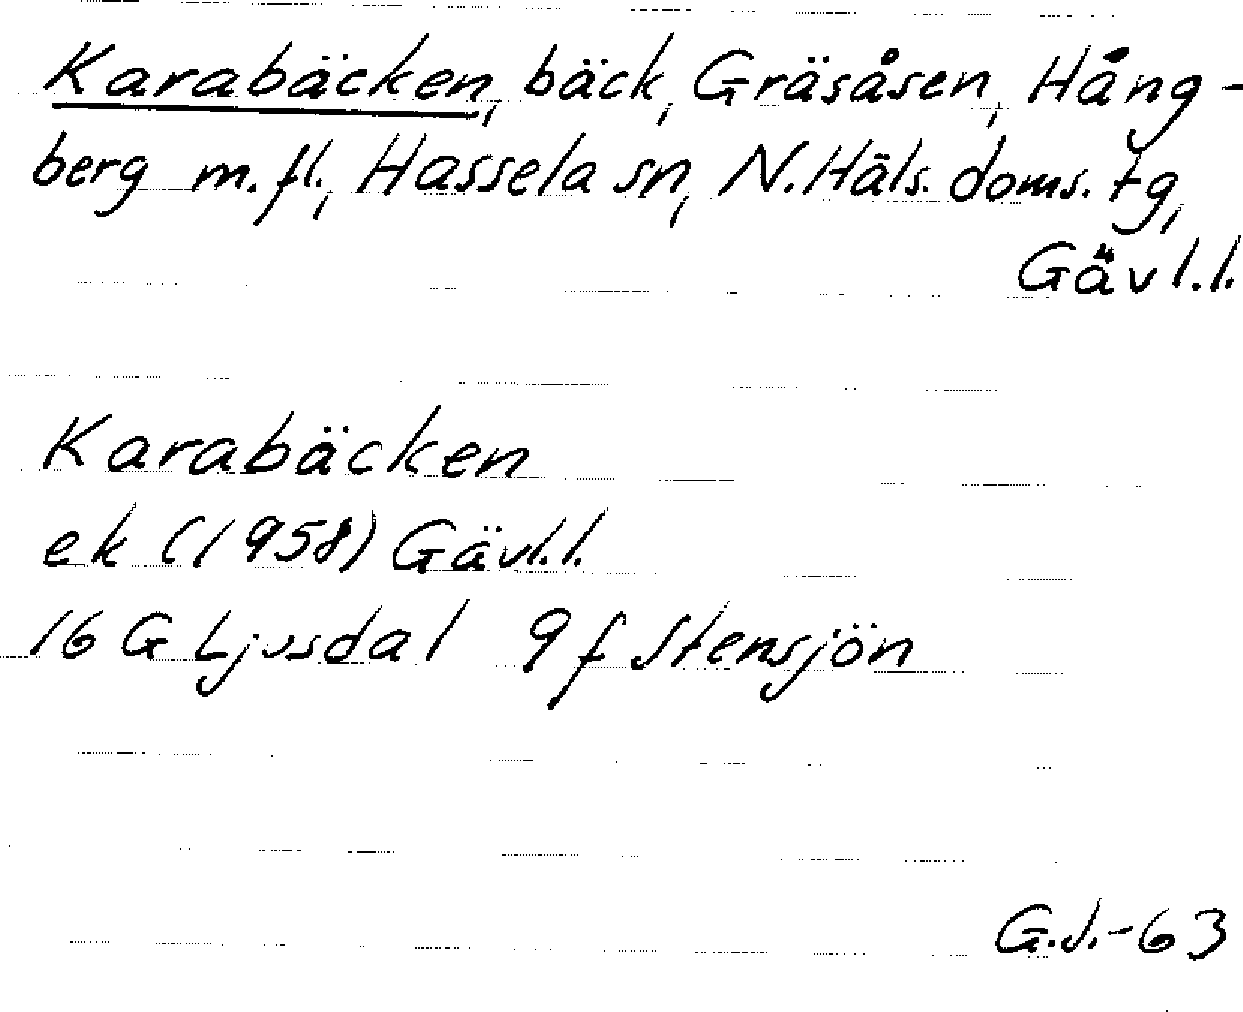 Karabäcken, bäck, Gräsåsen, Hång-
berg m.fl., Hassela sn, N.Häls. doms. tg,
Gävl.l.
Karabäcken
ek (1958) Gävl.l.
16 G Ljusdal 9 f Stensjön
G.J.-63